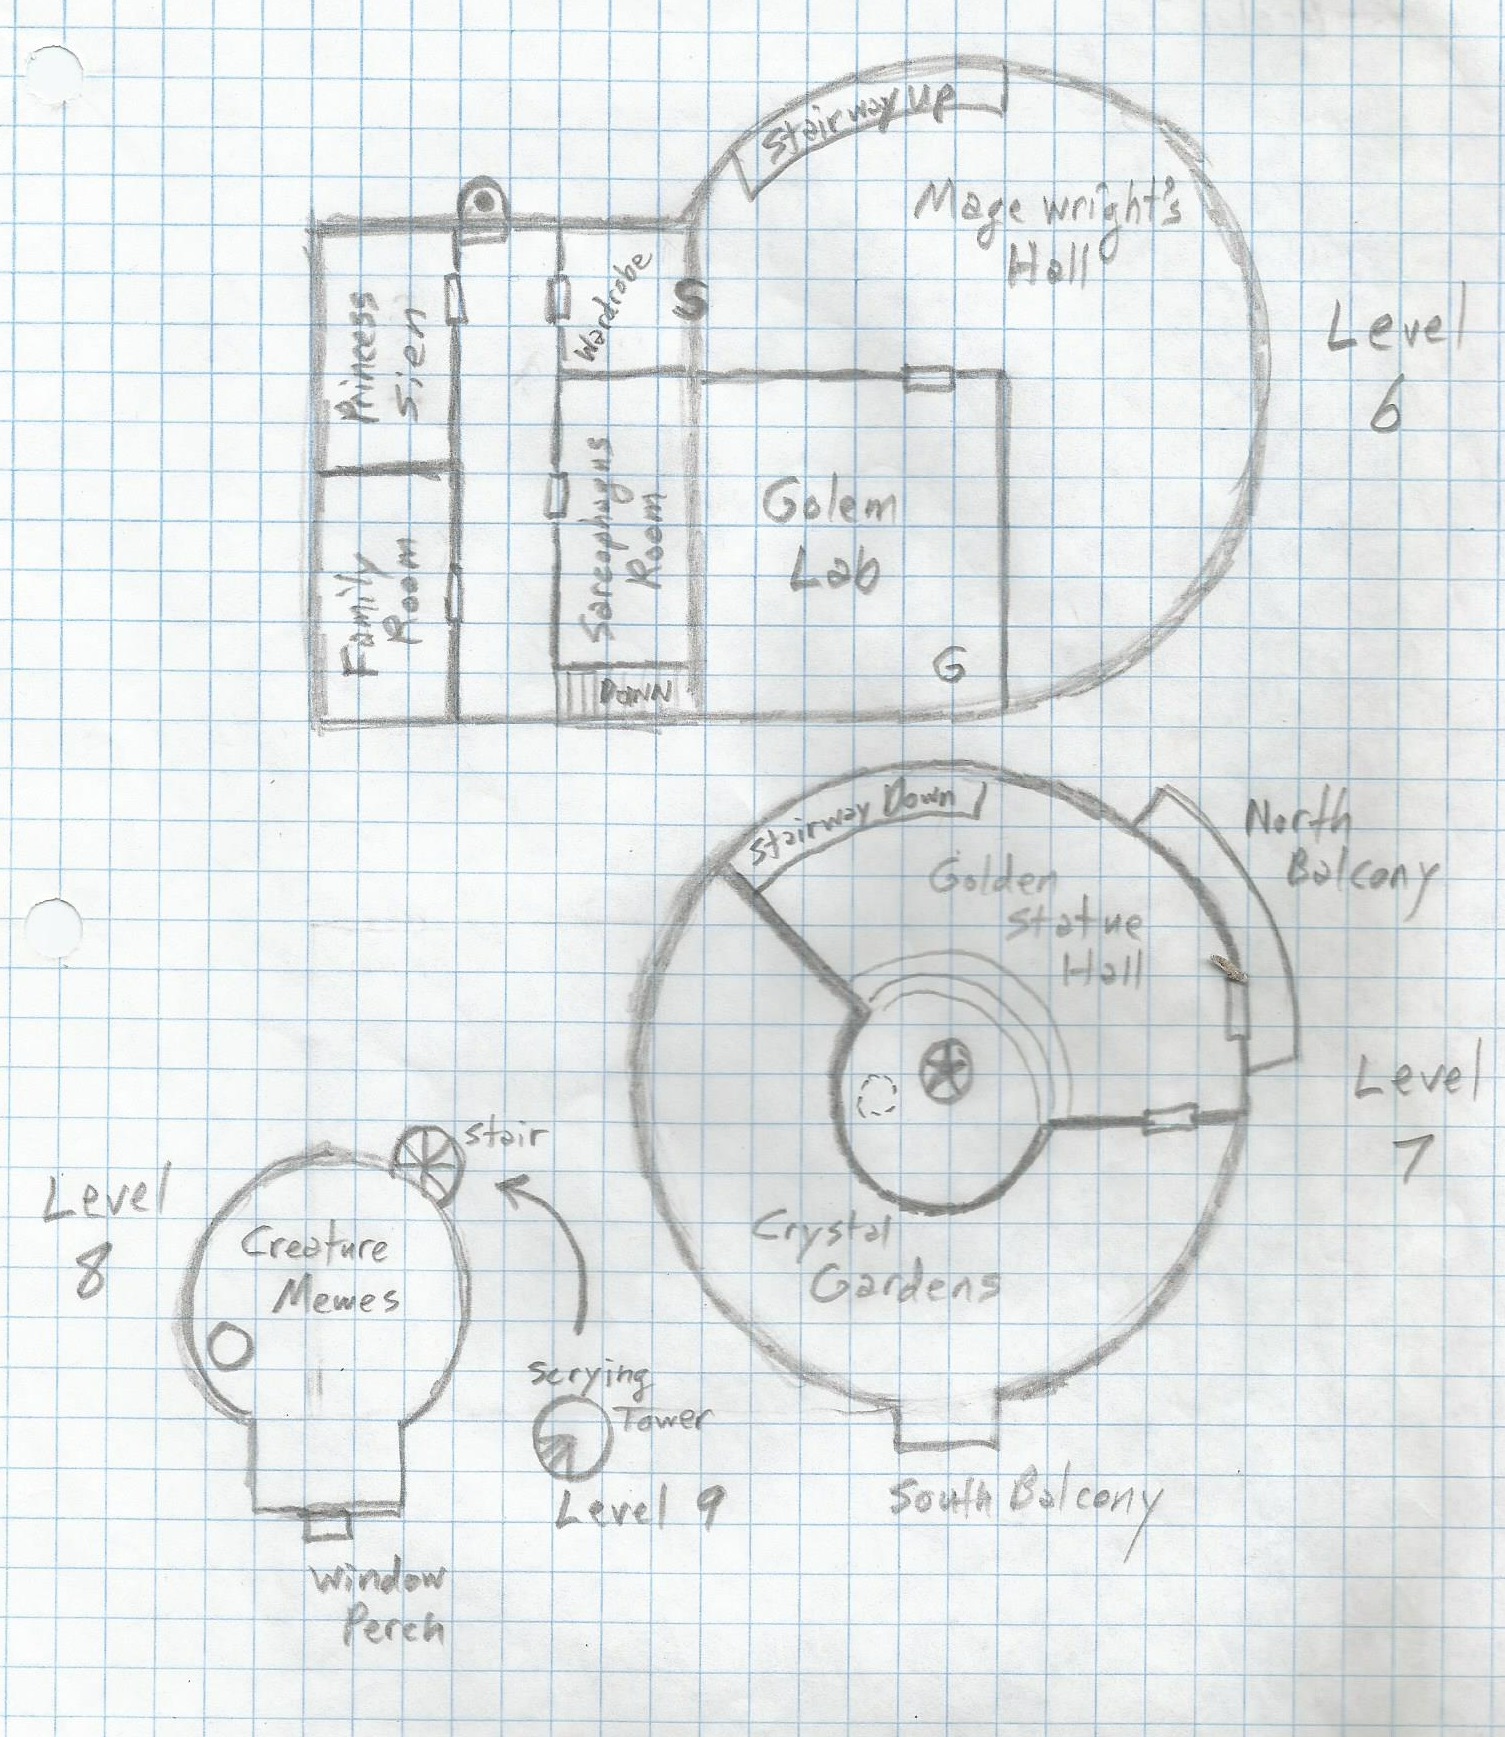 Stairway up
Mage wright's
Hall
Level
6
Wardrobe
S
Princess
Sien
Family
Room
Sarcophagus
Room
Golem
Lab
G
DOWN
Stairway Down
North
Balcony
Golden
Statue
Hall
Level
7
Crystal
Gardens
South Balcony
Stair
Level
8
Creature
Mewes
Window
Perch
Scrying
Tower
Level 9